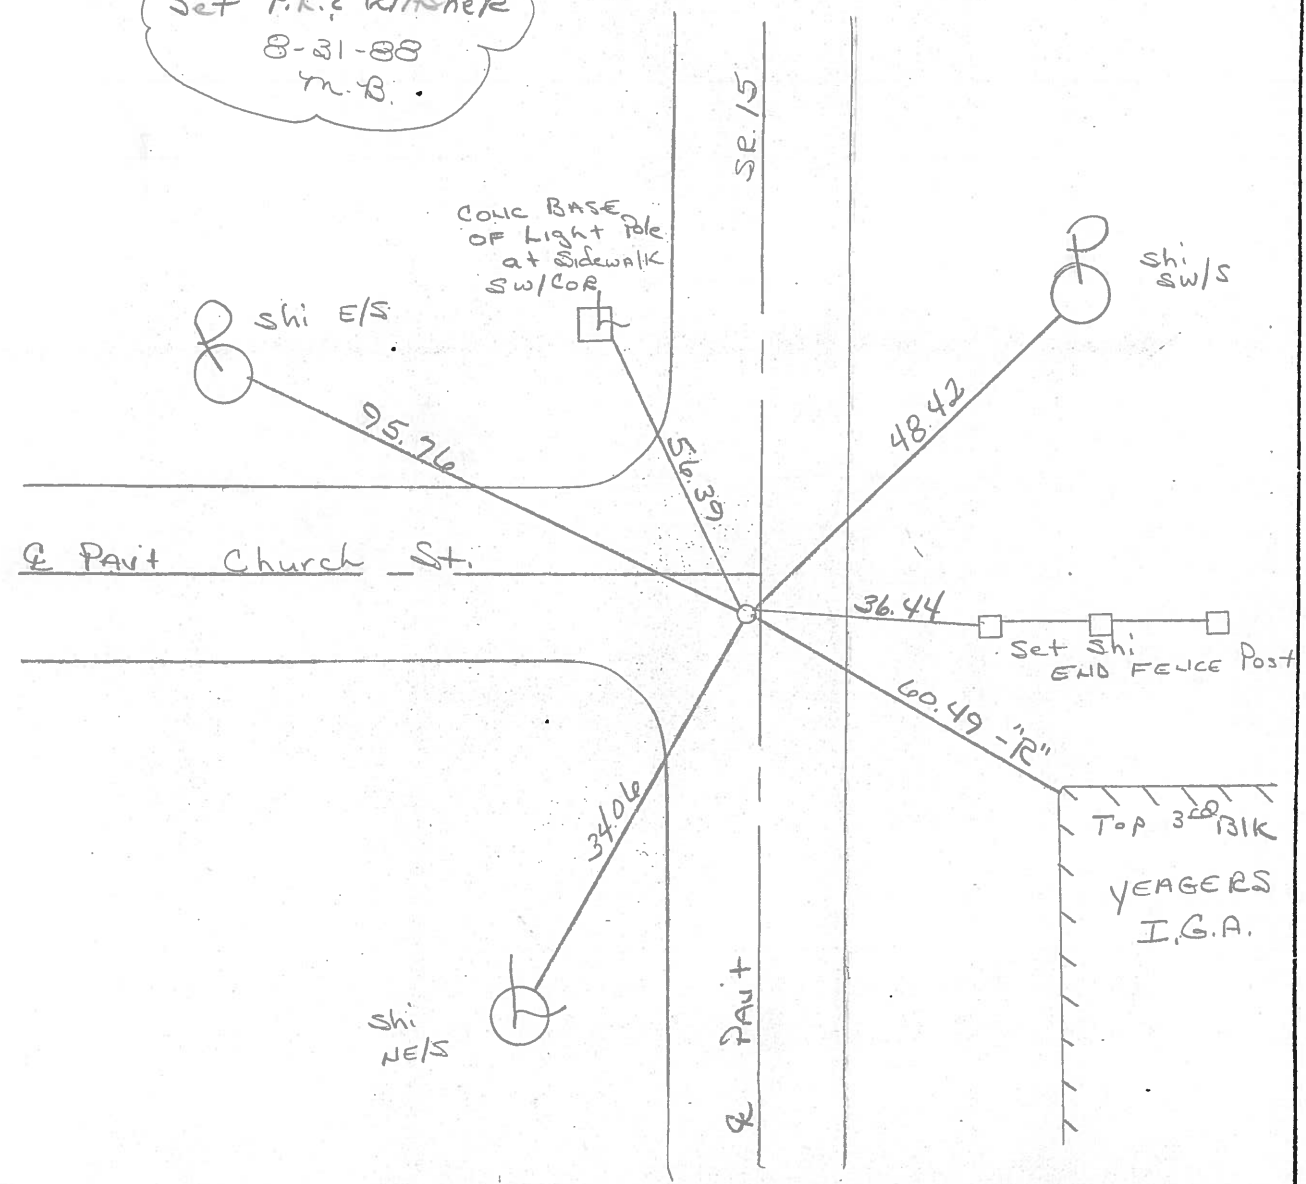 Set P.K. &
8-31-88
M.B.
SR. 15
CONC BASE
OF Light Pole
at SidewAlK
SW/COR
Shi E/S
Shi
SW/S
95.76
56.39
48.42
℄ PAV't Church St.
36.44
Set Shi
END FENCE Post
60.49 - "R"
34.06
TOP 3RD BlK
YEAGERS
I.G.A.
Shi
NE/S
℄ PAV't